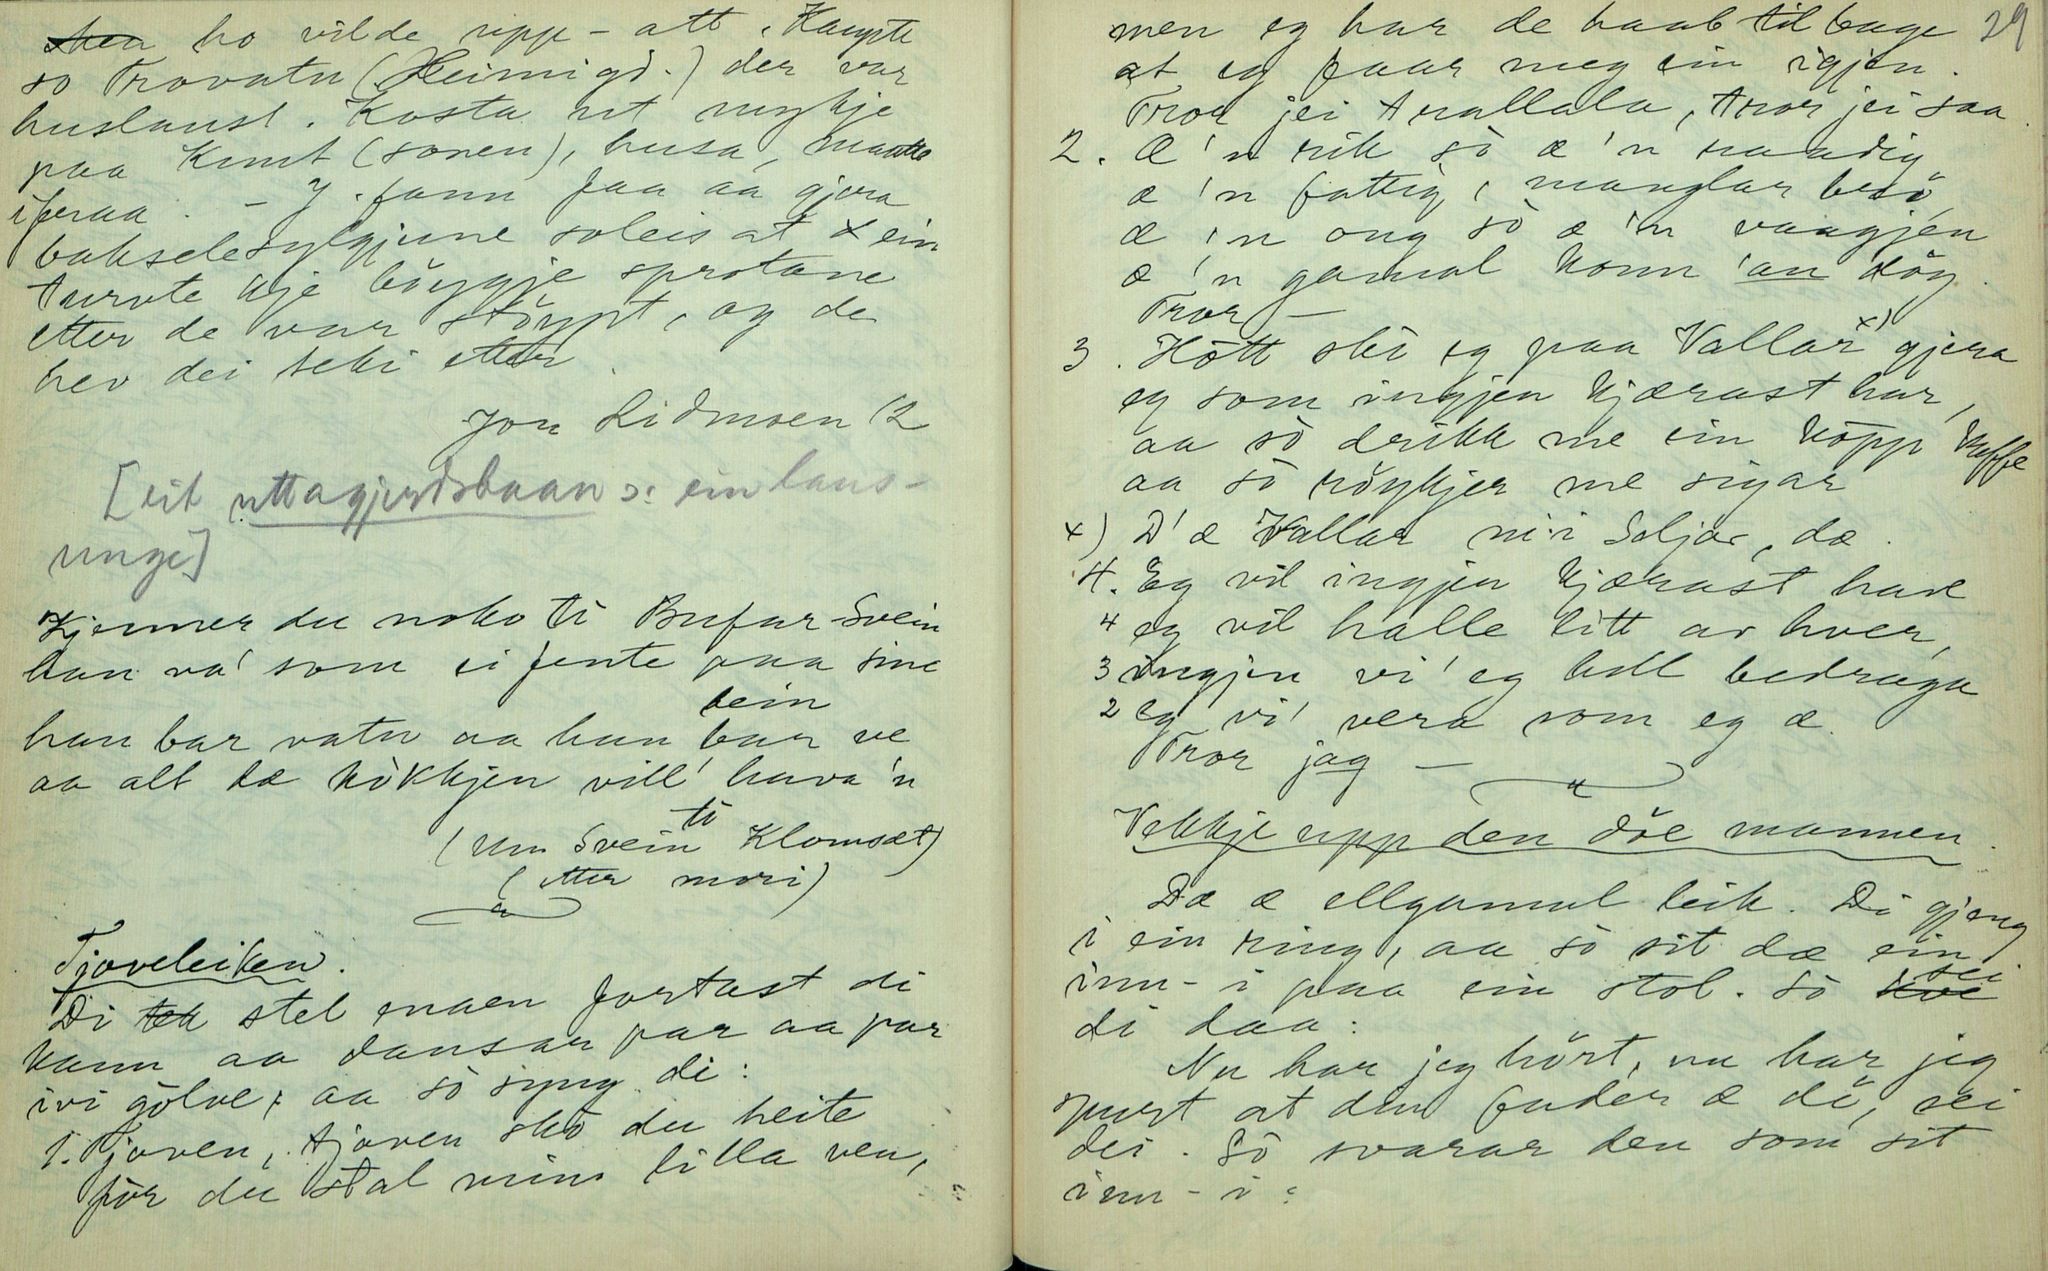 ~~Men~~ ho vilde upp-att. Kaupte
so Trovatn (Heimigd.) der var
huslaust. Kosta ut mykje
paa Knut (sonen), husa, maatte
ifraa. - J. fann paa aa gjera
bakselesylgjune soleis at ein
turvte kje böygje sprotane
etter de var stöypt, og de
hev dei seki etter.
Jon Lidmoen 12
[eit uttagjerdsbaan ɔ: ein laus-
unge]
Kjenner du noko ti Bufar-Svein
han va' som ei jente paa sine
bein
han bar vatn aa han bar ve
aa alt dæ kökkjen vill' hava 'n
(um Svein ti Klomsæt)
(etter mori)
Tjoveleiken.
Di ~~tek~~ stel einaen fortast di
kann aa dansar par aa par
ivi gölve, aa sò syng di:
1. Tjoven, tjoven skò du heite
för du stal min lilla ven,
29
men eg har de haab tilbage
at eg faar meg ein igjen.
Tror jei trallala, tror jei saa.
2. Æ 'n rik sò æ 'n raadig
æ 'n fattig, manglar besò,
æ 'n ong sò æ 'n vaagjen
æ 'n gamal konn 'an dög.
Tror —
3. Hött skò eg paa Vallar x) gjera
eg som ingjen kjærast har,
aa sò drikk me ein köpp kaffe
aa sò röykjer me sigar
x) D' æ Vallar ni i Seljor, dæ.
4. Eg vil ingjen kjærast have
4 eg vil halle litt av hver,
3 ingjen vi' eg hell bedraga
2 eg vi' vera som eg æ.
Tror jag —
Vekkje upp den döe mannen.
Dæ æ ellgamal leik. Di gjeng
i ein ring, aa sò sit dæ ein
inn-i paa ein stol. Sò sei
di daa:
Nu har jeg hört, nu har jeg
spurt at din fader æ dö, sei
dei. Sò svarar den som sit
inn-i: